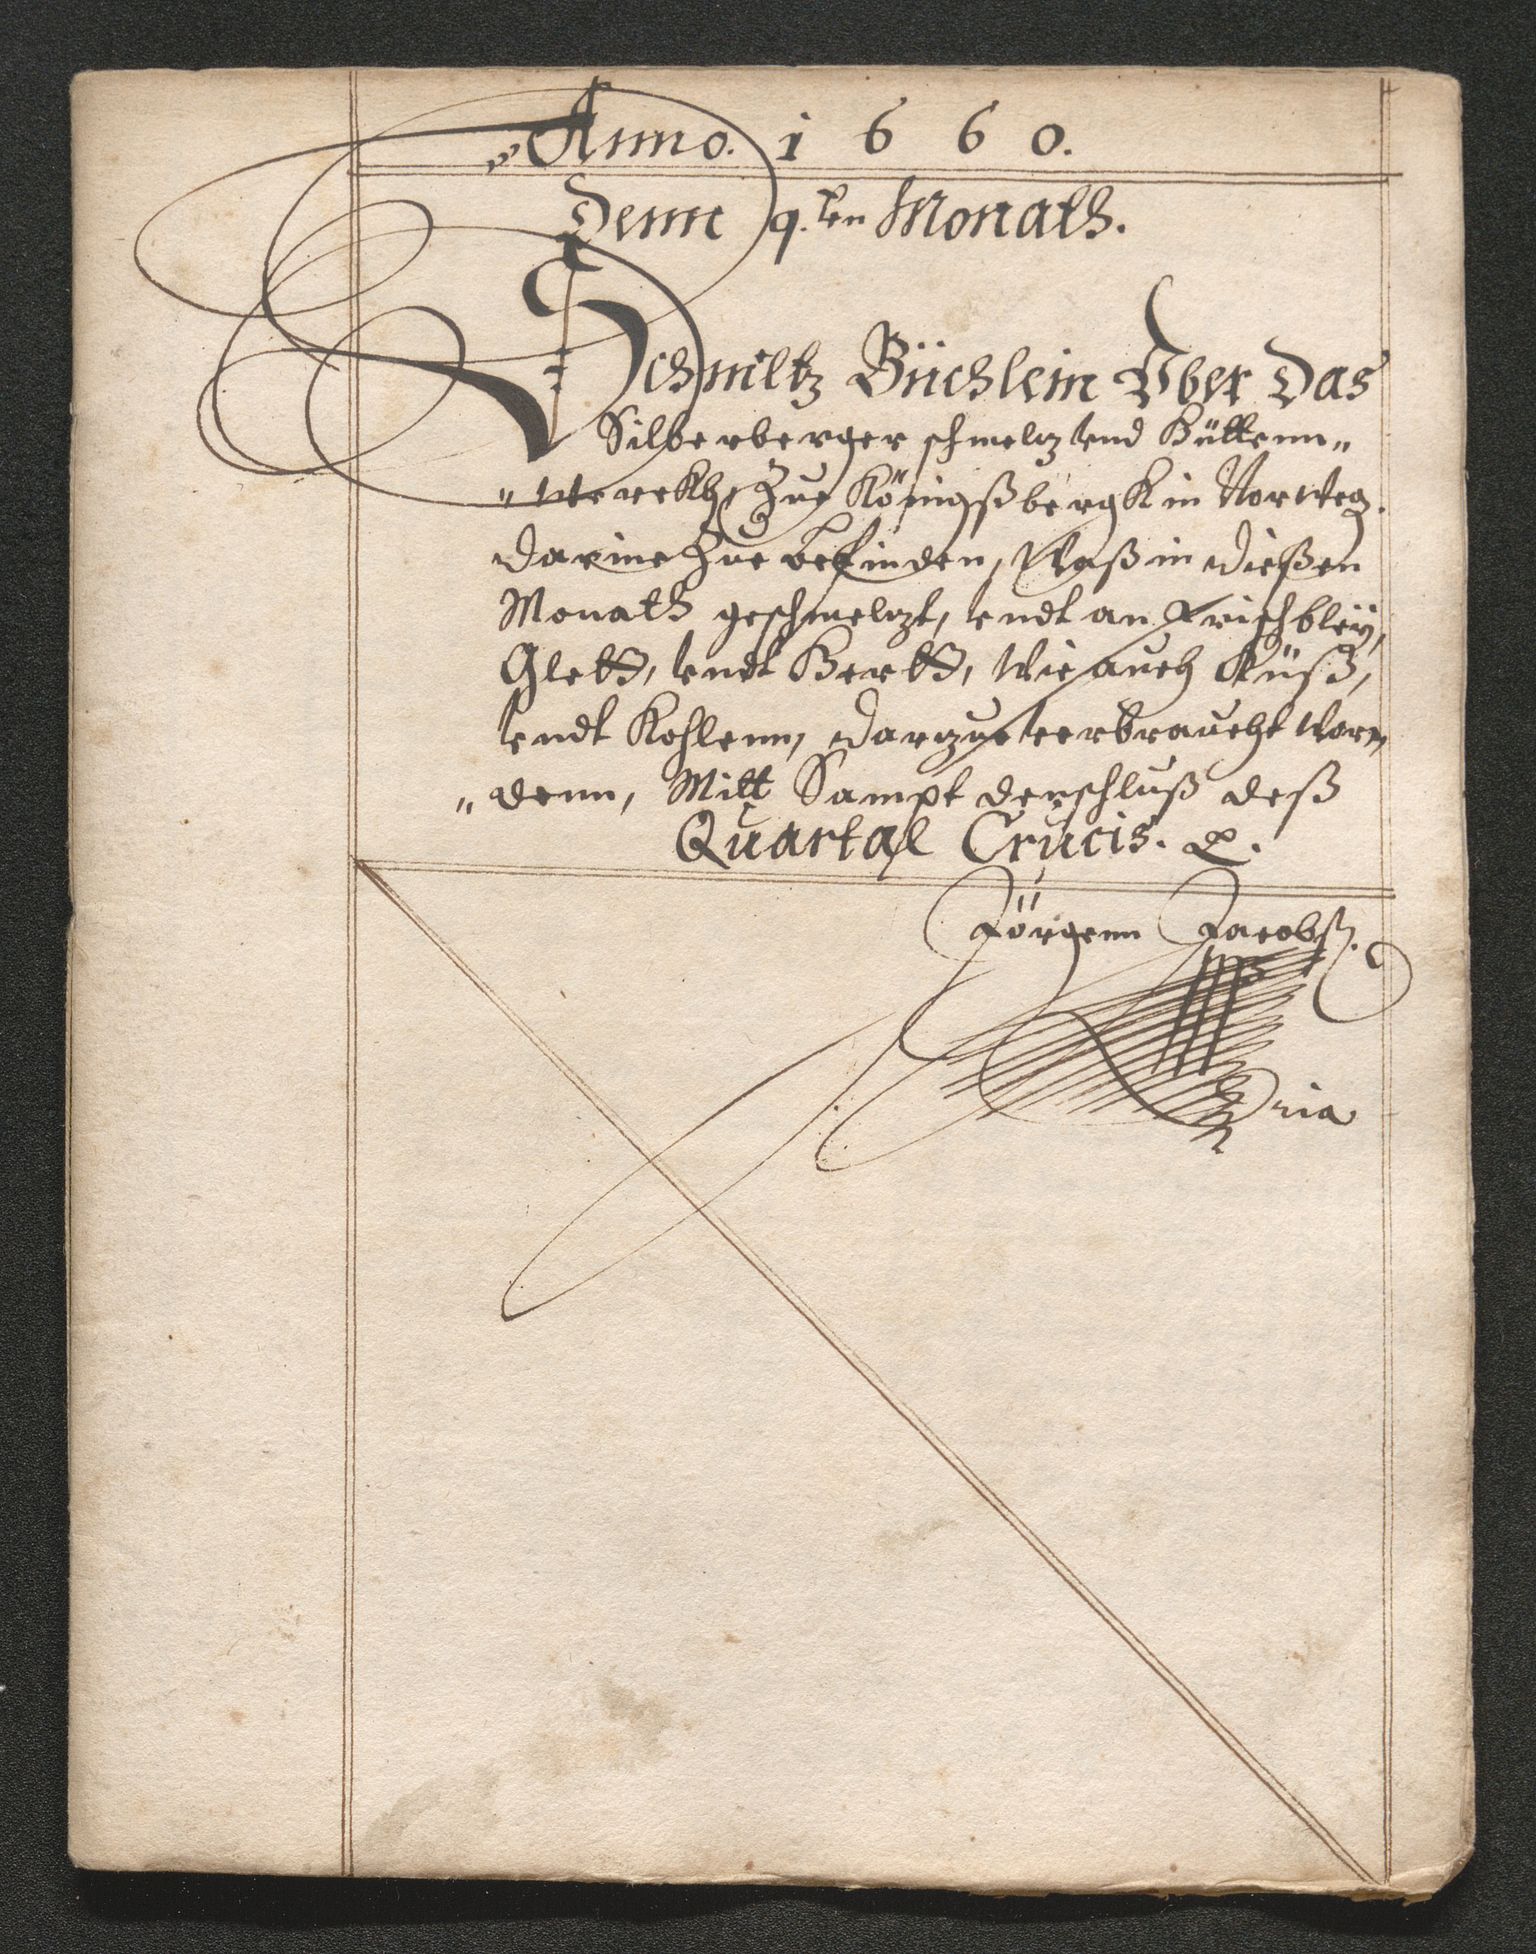 Anno. 1660.
Denn 9.ten Monath.
Schmeltz Büchlein Vber Das
Silberberger schmeltz vnd Hüttenn"
"werckh, Zue Königßbergk in Norweg.
darine Zue befinden, Waß in dießen
Monath geschmeltzt, vndt an Frischbleÿ,
Glett, vndt Hertt, wie auch Küß,
vndt Kohlenn, darzue verbraucht wor„
„denn, Mitt Sampt der schluß deß
Quartal Crucis. &.
Jörgenn Jacobß.